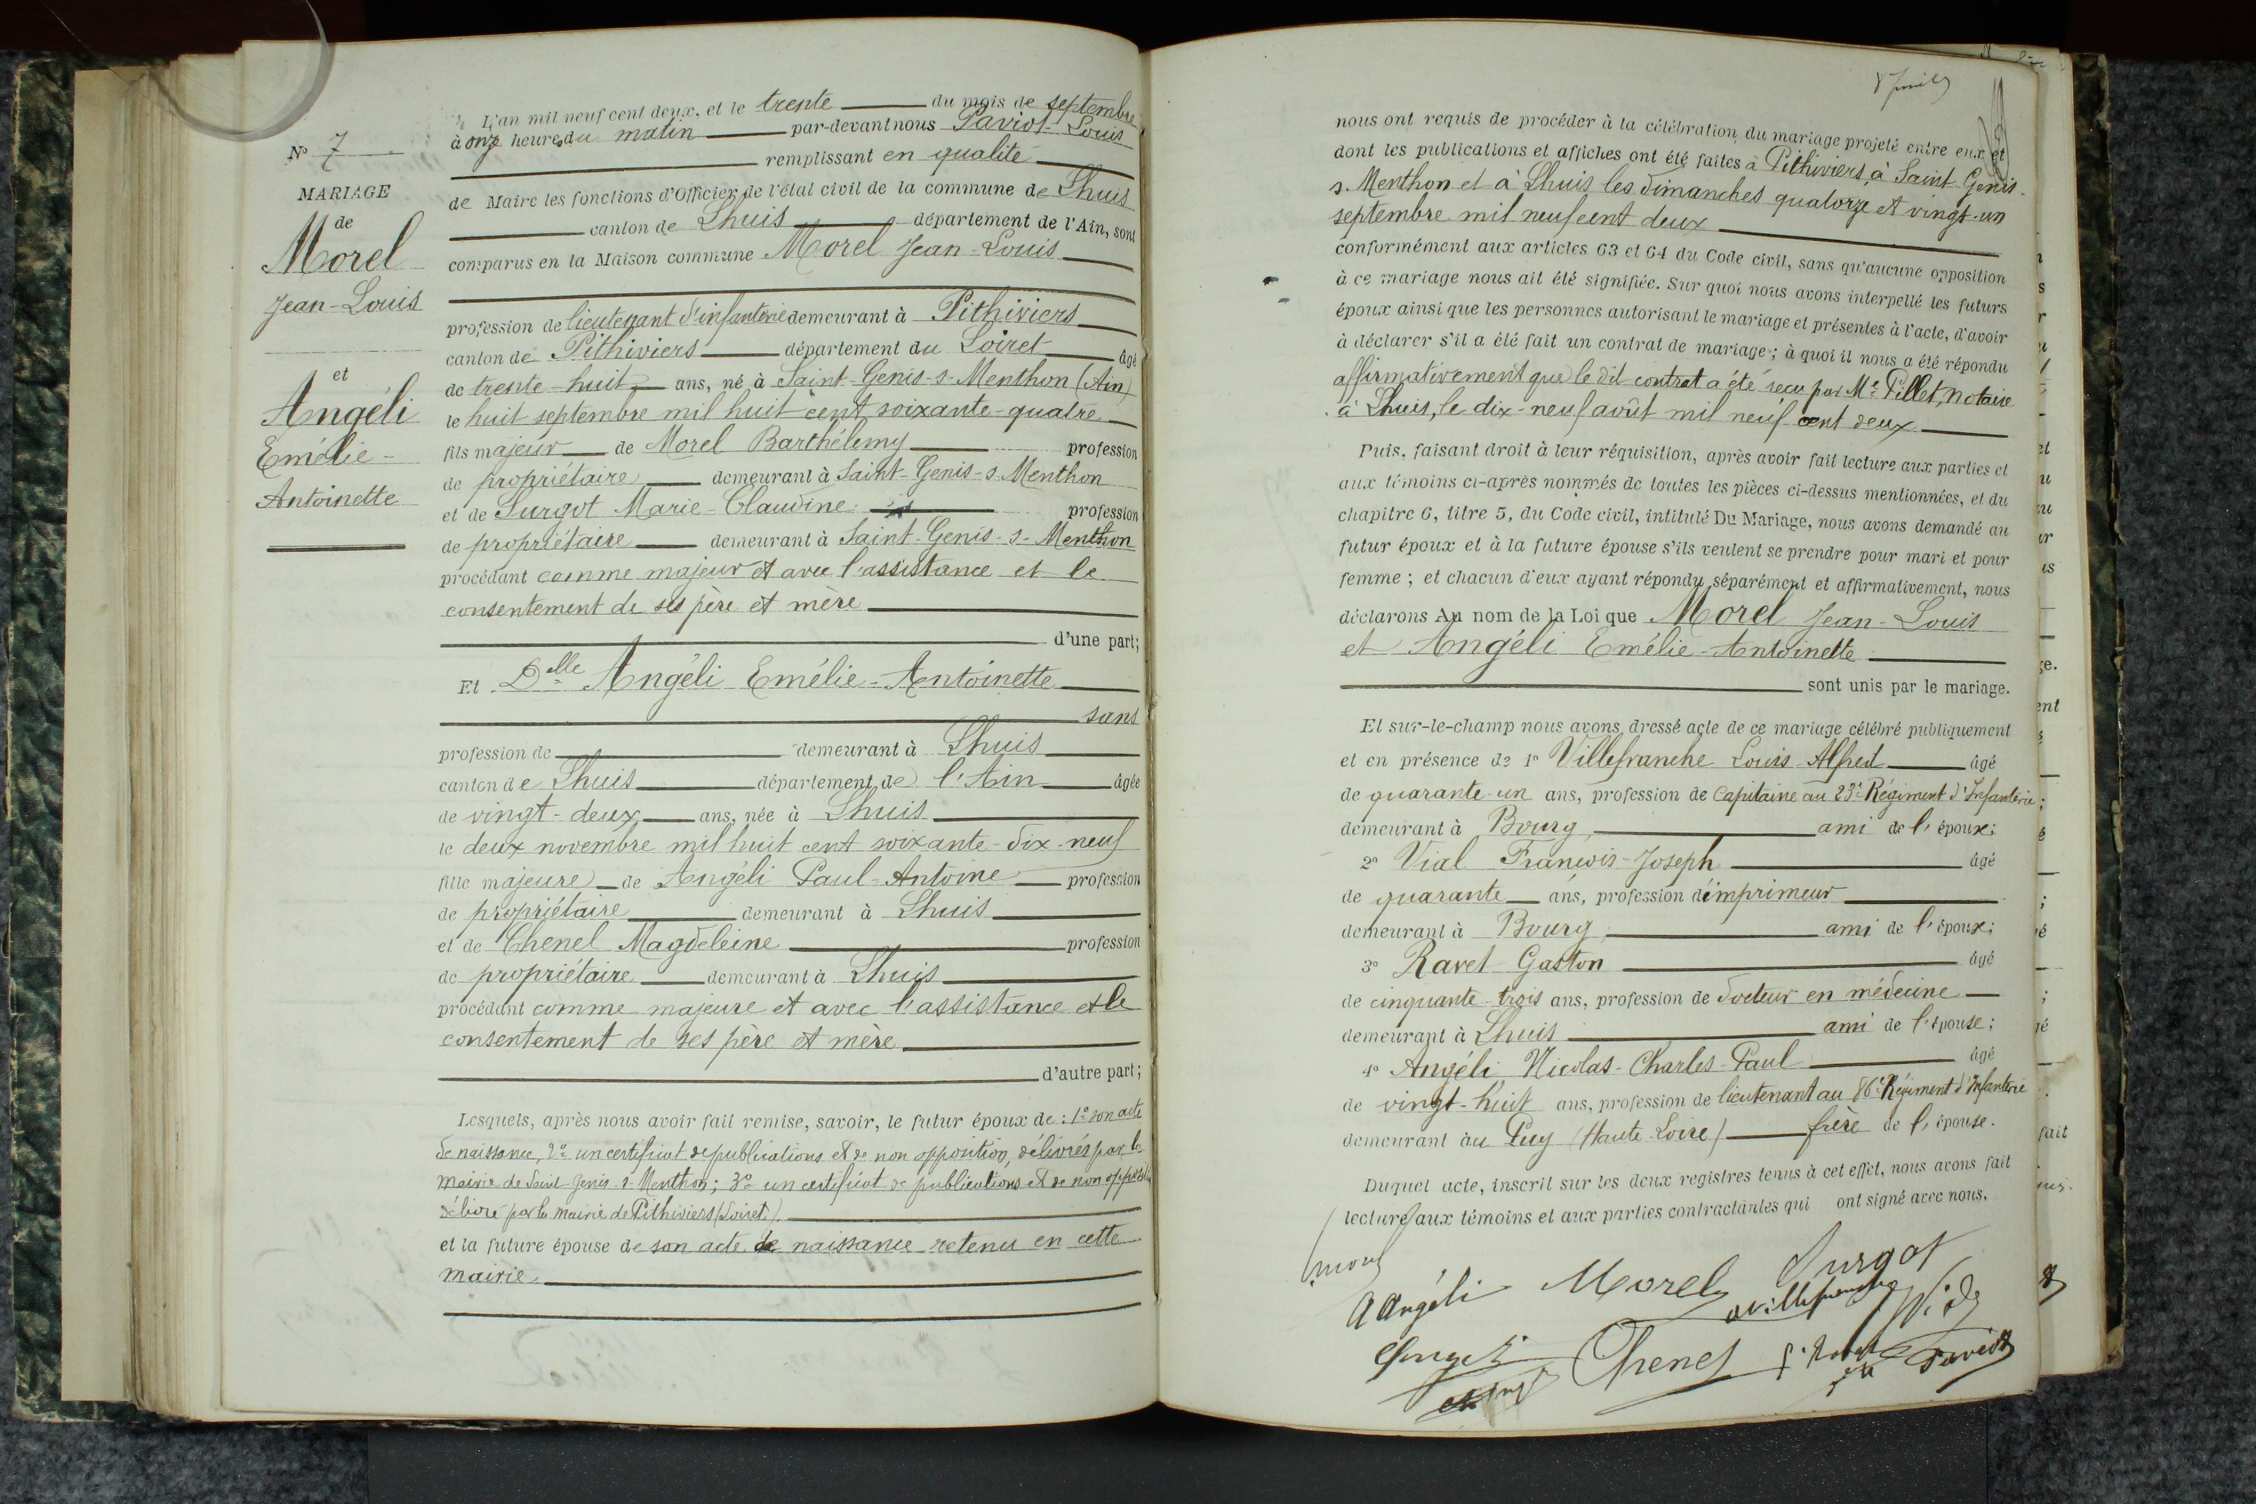 N° 7
MARIAGE
de
Morel
Jean-Louis
et
Angéli
Emélie-
Antoinette
L'an mil neuf cent deux, et le trente du mois de septembre
à onze heures du matin par-devant nous Paviot Louis
remplissant en qualité
de Maire les fonctions d'Officier de l'état civil de la commune de Lhuis
canton de Lhuis département de l'Ain, sont
comparus en la Maison commune Morel Jean-Louis
profession de lieutenant d'infanterie demeurant à Pithiviers
canton de Pithiviers département du Loiret âgé
de trente-huit ans, né à Saint-Genis-s-Menthon (Ain)
le huit septembre mil huit cent soixante-quatre
fils majeur de Morel Barthélemy profession
de propriétaire demeurant à Saint-Genis-s-Menthon
et de Surgot Marie-Claudine profession
de propriétaire demeurant à Saint-Genis-s-Menthon
procédant comme majeur et avec l'assistance et le
consentement de ses père et mère
d'une part;
Et Delle Angéli Emélie-Antoinette
sans
profession de demeurant à Lhuis
canton de Lhuis département de l'Ain âgée
de vingt-deux ans, née à Lhuis
le deux novembre mil huit cent soixante-dix-neuf
fille majeure de Angéli Paul-Antoine profession
de propriétaire demeurant à Lhuis
et de Chenel Magdeleine profession
de propriétaire demeurant à Lhuis
procédant comme majeure et avec l'assistance et le
consentement de ses père et mère
d'autre part;
Lesquels, après nous avoir fait remise, savoir, le futur époux de : 1° son acte
de naissance, 2° un certificat de publications et de non opposition, délivrés par la
mairie de Saint Genis-s-Menthon; 3° un certificat de publications et de non oppositi
délivré par la mairie de Pithiviers (Loiret).
et la future épouse de son acte de naissance retenu en cette
mairie.
nous ont requis de procéder à la célébration du mariage projeté entre eux et
dont les publications et affiches ont été faites à Pithiviers, à Saint-Genis-
s-Menthon et à Lhuis les dimanches quatorze et vingt-un
septembre mil neuf cent deux
conformément aux articles 63 et 64 du Code civil, sans qu'aucune opposition
à ce mariage nous ait été signifiée. Sur quoi nous avons interpellé les futurs
époux ainsi que les personnes autorisant le mariage et présentes à l'acte, d'avoir
à déclarer s'il a été fait un contrat de mariage; à quoi il nous a été répondu
affirmativement que le dit contrat a été reçu par Me Pillet, notaire
à Lhuis, le dix-neuf août mil neuf cent deux
Puis, faisant droit à leur réquisition, après avoir fait lecture aux parties et
aux témoins ci-après nommés de toutes les pièces ci-dessus mentionnées, et du
chapitre 6, titre 5, du Code civil, intitulé Du Mariage, nous avons demandé au
futur époux et à la future épouse s'ils veulent se prendre pour mari et pour
femme ; et chacun d'eux ayant répondu séparément et affirmativement, nous
déclarons Au nom de la Loi que Morel Jean-Louis
et Angéli Emélie-Antoinette
sont unis par le mariage.
Et sur-le-champ nous avons dressé acte de ce mariage célébré publiquement
et en présence de 1° Villefranche Louis-Alfred âgé
de quarante-un ans, profession de capitaine au 23e Régiment d'Infanterie;
demeurant à Bourg ami de l'époux;
2° Vial François-Joseph âgé
de quarante ans, profession d'imprimeur
demeurant à Bourg ami de l'époux;
3° Ravet Gaston âgé
de cinquante-trois ans, profession de docteur en médecine
demeurant à Lhuis ami de l'épouse;
4° Angéli Nicolas-Charles-Paul âgé
de vingt-huit ans, profession de lieutenant au 86e Régiment d'Infanterie
demeurant au Puy (Haute-Loire) frère de l'épouse.
Duquel acte, inscrit sur les deux registres tenus à cet effet, nous avons fait
lecture aux témoins et aux parties contractantes qui ont signé avec nous.
Morel Surgot
A Angéli aVillefranche
Chenel Paviot